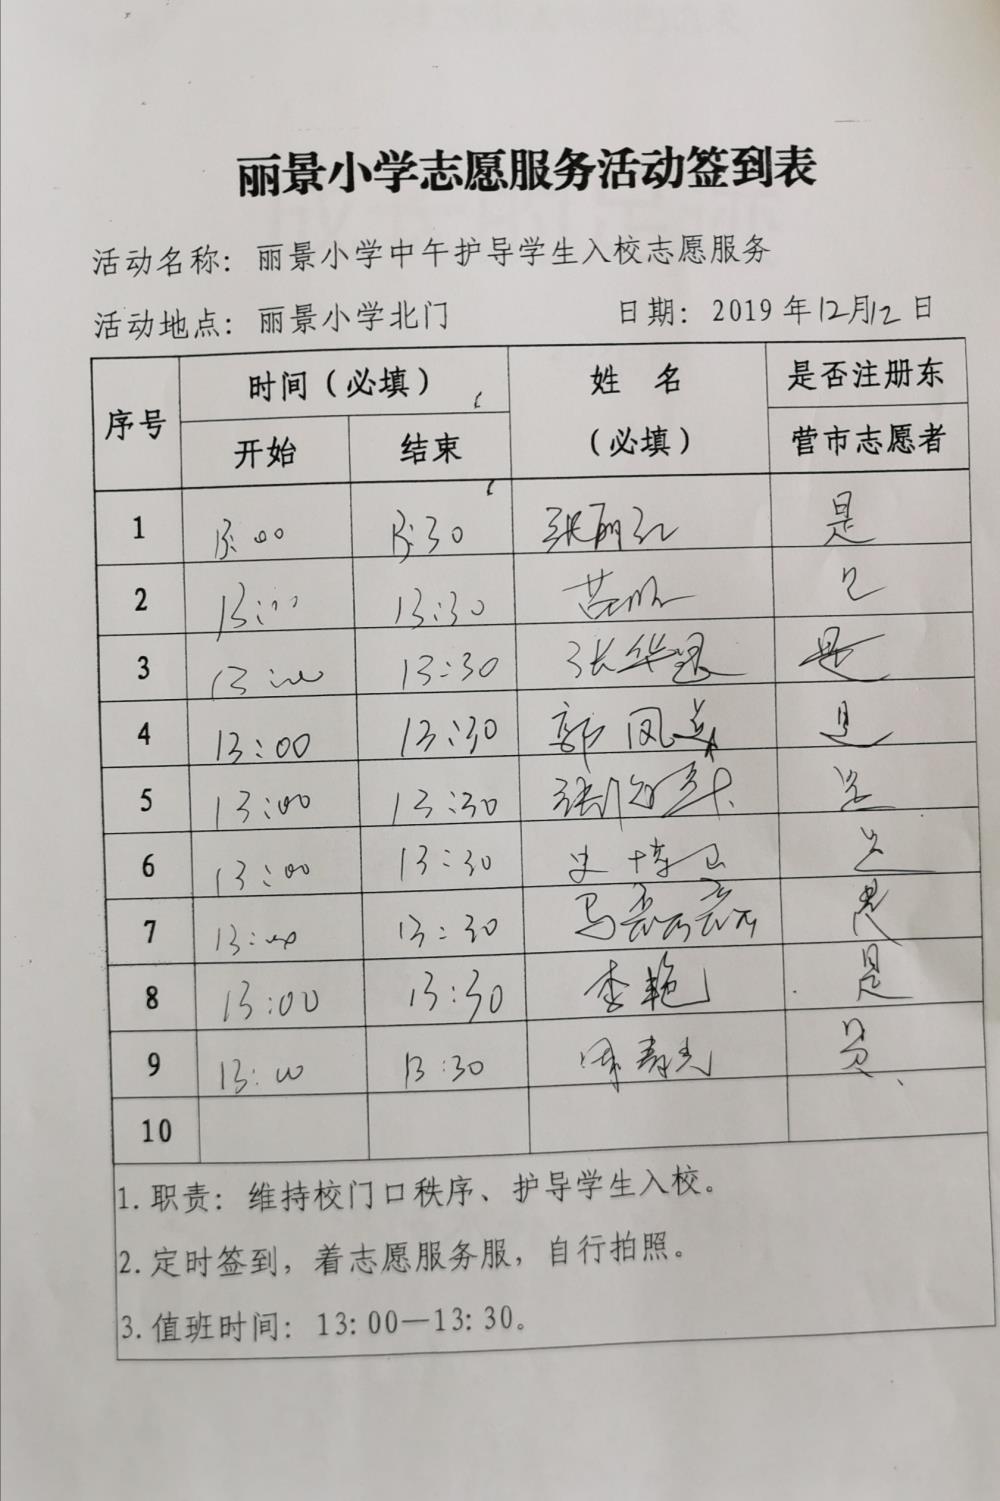 丽景小学志愿服务活动签到表
活动名称：丽景小学中午护导学生入校志愿服务
活动地点：丽景小学北门 日期：2019年12月12日
序号 时间（必填） 姓名（必填） 是否注册东营市志愿者
开始 结束
1 13:00 13:30 张丽红 是
2 13:00 13:30 是
3 13:00 13:30 张华 是
4 13:00 13:30 郭凤英 是
5 13:00 13:30 张 是
6 13:00 13:30 史博 是
7 13:00 13:30 马 是
8 13:00 13:30 李艳 是
9 13:00 13:30 春光 是
10
1.职责：维持校门口秩序、护导学生入校。
2.定时签到，着志愿服务服，自行拍照。
3.值班时间：13:00—13:30。